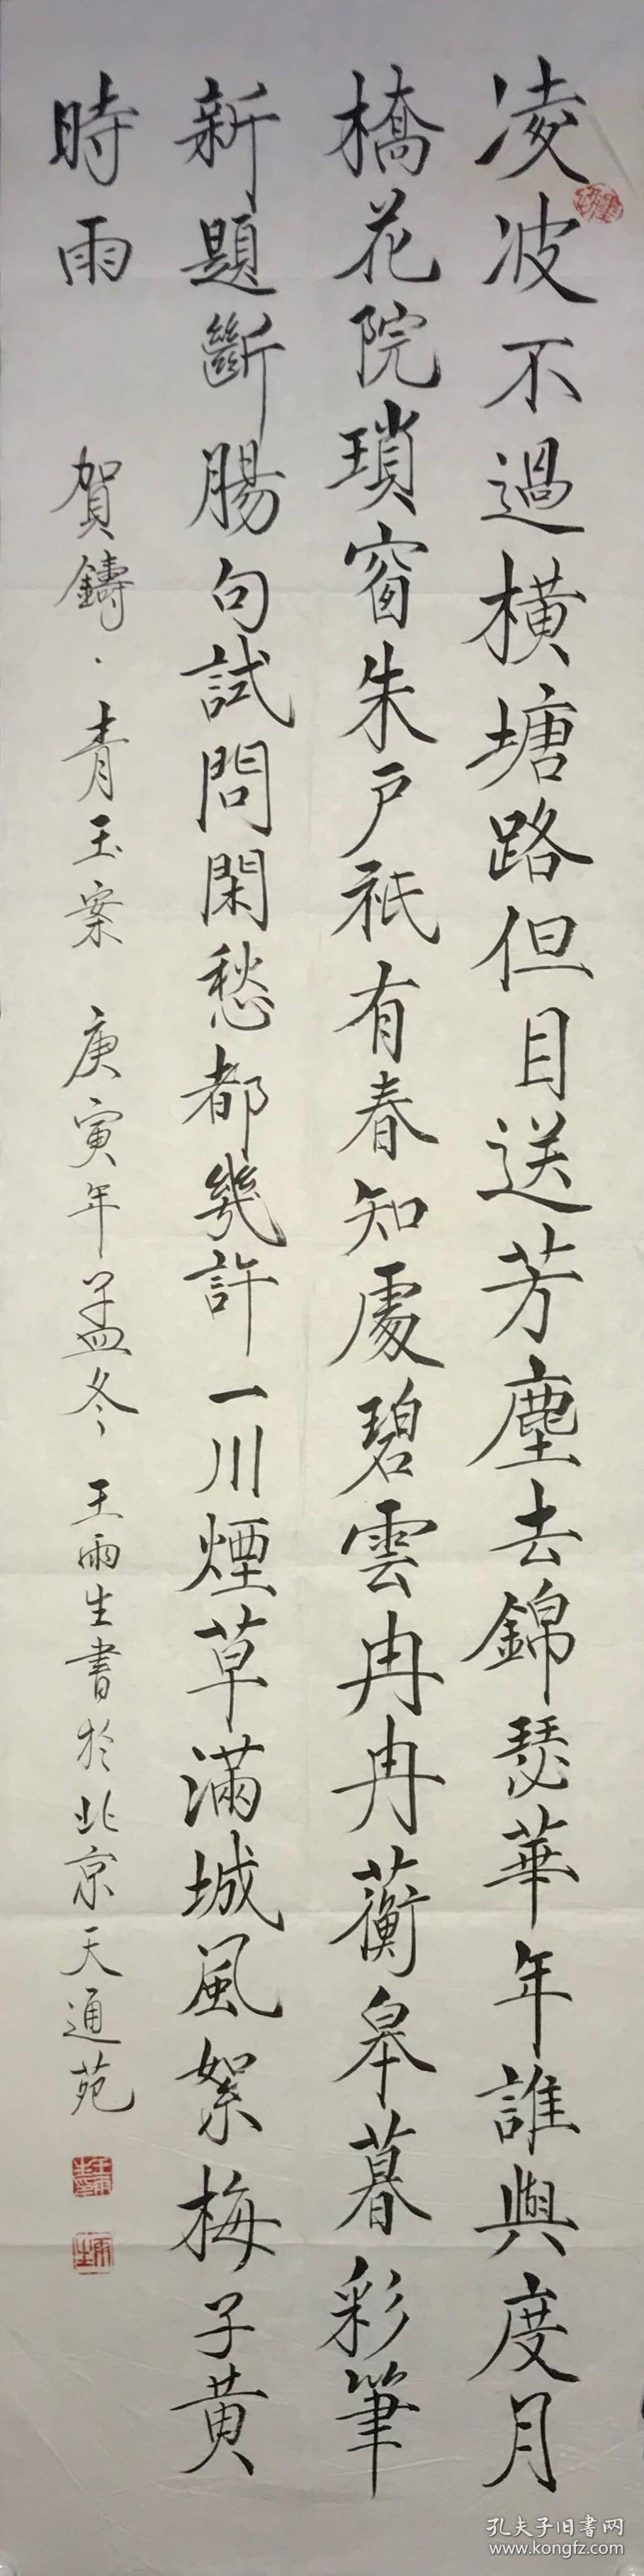 凌波不過橫塘路但目送芳塵去錦瑟華年誰與度月
橋花院瑣窗朱戶祇有春知處碧雲冉冉蘅皋暮彩筆
新題斷腸句試問閑愁都幾許一川煙草滿城風絮梅子黃
時雨 賀鑄·青玉案 庚寅年孟冬 王雨生書於北京天通苑
孔夫子旧书网
www.kongfz.com